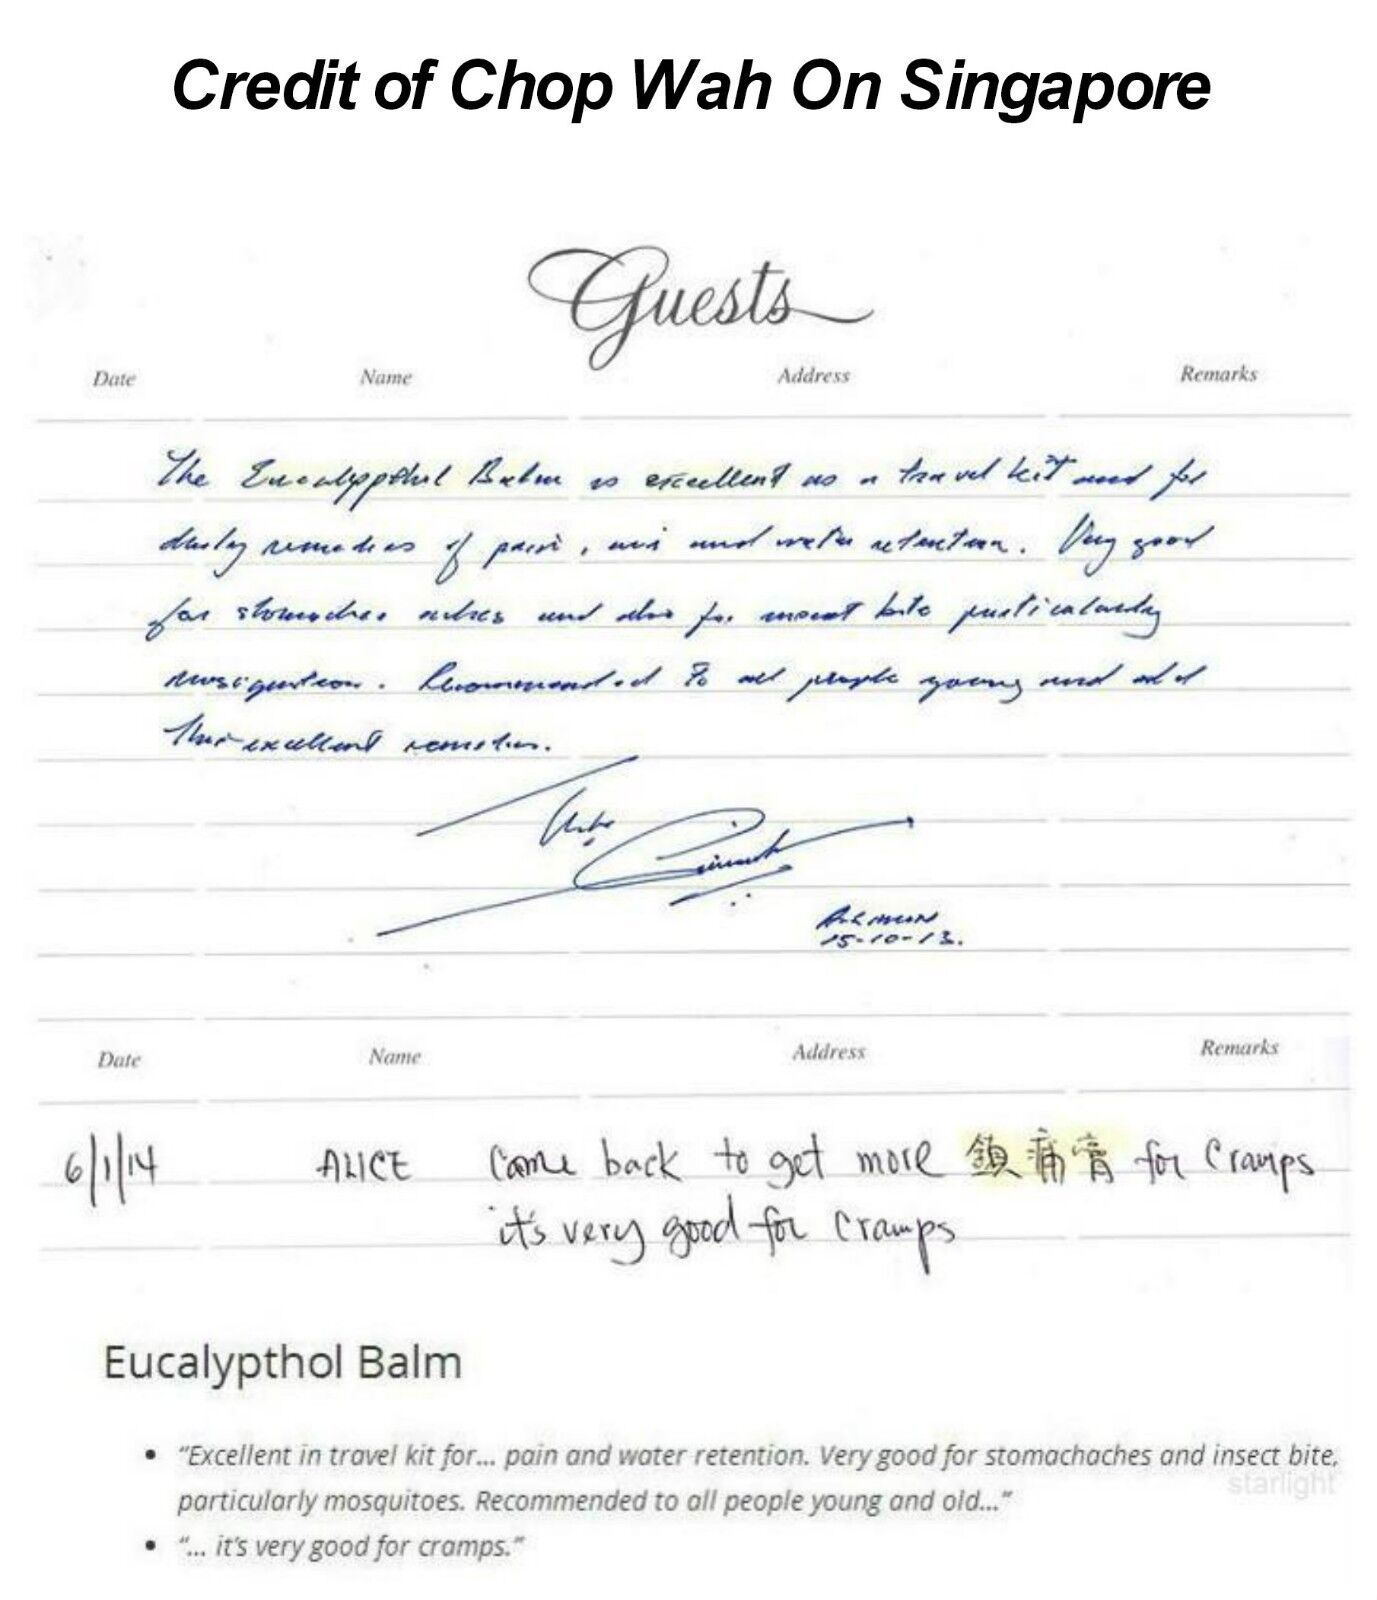 Credit of Chop Wah On Singapore
Guests
Date Name Address Remarks
The Eucalyppthol Balm is excellent as a travel kit and for
daily remedies of pain, and water retention. Very good
for stomaches aches and also for insect bite particularly
Recommended to all people young and old
This excellent remedies.
15-10-13.
Date Name Address Remarks
6/1/14 ALICE Came back to get more 鎮痛膏 for Cramps
it's very good for cramps
Eucalypthol Balm
• “Excellent in travel kit for... pain and water retention. Very good for stomachaches and insect bite,
starlight
particularly mosquitoes. Recommended to all people young and old...”
• “... it’s very good for cramps.”